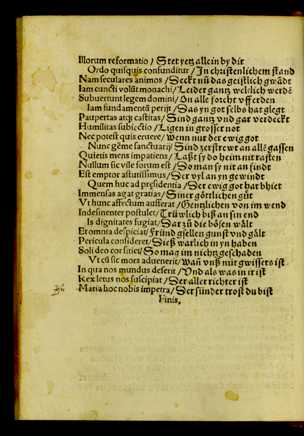 Illorum reformatio / Stet yetz allein by dir
Ordo quisquis confunditur / In christenlichem stand
Nam seculares animos / Seckt nū das geistlich gwādt
Iam cuncti volūt monachi / Leider gantz weltlich werdē
Subuertunt legem domini / On alle forcht vff erden
Iam fundamentū perijt / Das yn got selbs hat glegt
Paupertas atq; castitas / Sind gantz vnd gar verdeckt
Humilitas subiectio / Ligen in grosser not
Nec potest quis euitere / Wenn nur der ewig got
Nunc gēme sanctuarij / Sind zerstrewt an allē gassen
Quietus mens impatiens / Laßt sy do heim nit rasten
Nullum sic vile forum est / Do man sy nit an findt
Est emptor astutissimus / Der vyl an yn gewindt
Quem huc ad presidentia / Der ewig got hat bhiet
Immensas agat gratias / Siner götlichen güt
Vt hunc affectum aufferat / Heimlichen von im wend
Indesinenter postulet / Trüwlich biß an sin end
Is dignitates fugiat / Dar zū die bösen wält
Et omnia despiciat / Fründ gsellen gunst vnd gält
Pericula consideret / Dieß warlich in yn haben
Soli deo cor sitiet / So mag im nicht geschaden
Vt cū sic mors aduenerit / Wañ vnß nüt gwissers ist
In qua nos mundus deserit / Vnd als was in ir ist
Rex letus nos suscipiat / Der aller richter ist
Maria hoc nobis impetra / Der sünder trost du bist
Finis.